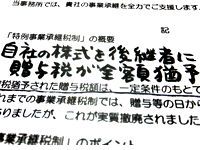 当事務所では、貴社の事業承継を全力でご支援します
記
「特例事業承継税制」の概要
自社の株式を後継者に
贈与税が全額猶予
税猶予された贈与税額は、一定条件のもとで
これまでの事業承継税制では、贈与等の日から
ありましたが、これが実質撤廃されました
承継税制」のポイント